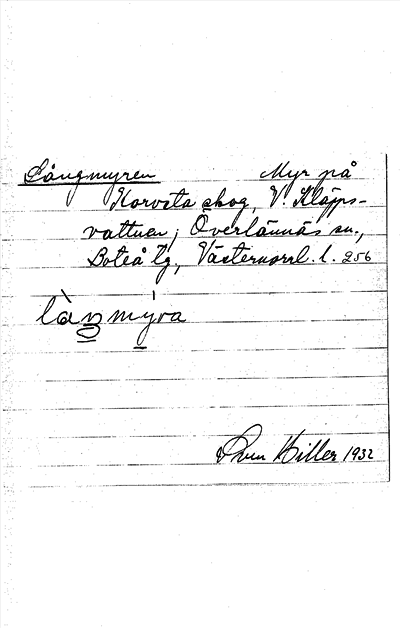 Långmyren Myr på
Korvsta skog, V. Kläpps-
vattnen, Överlännäs sn.,
Boteå tg, Västernorrl. l. 256
làŋmýra
Sven Hiller 1932